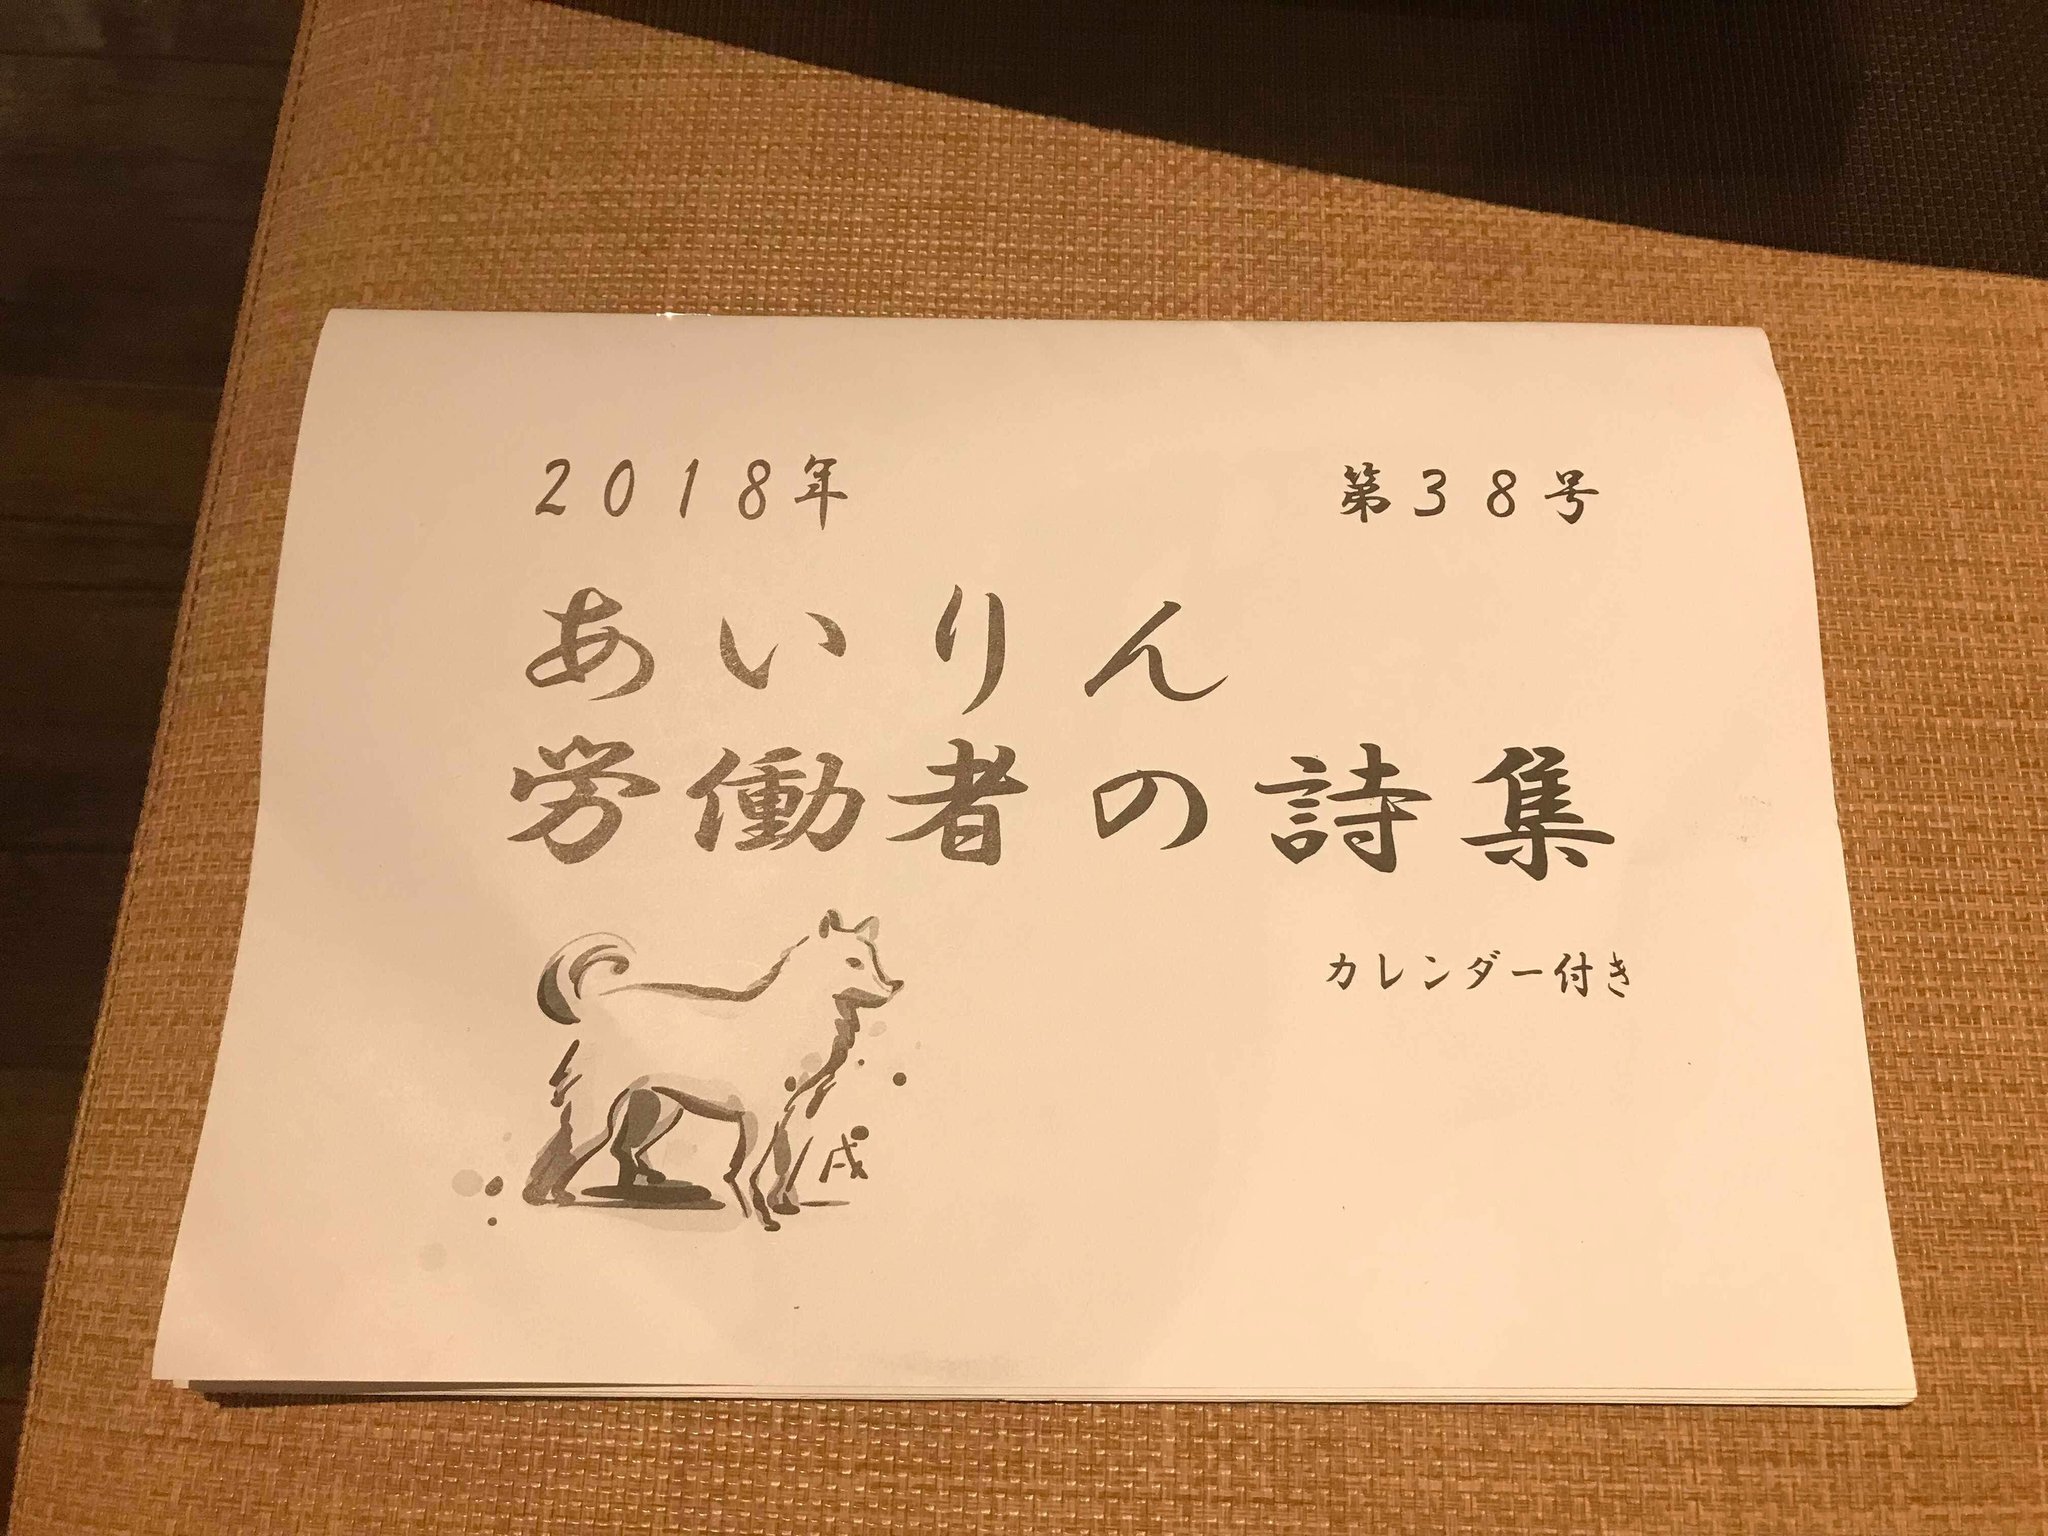 ２０１８年　第３８号
あいりん
労働者の詩集
カレンダー付き
戌